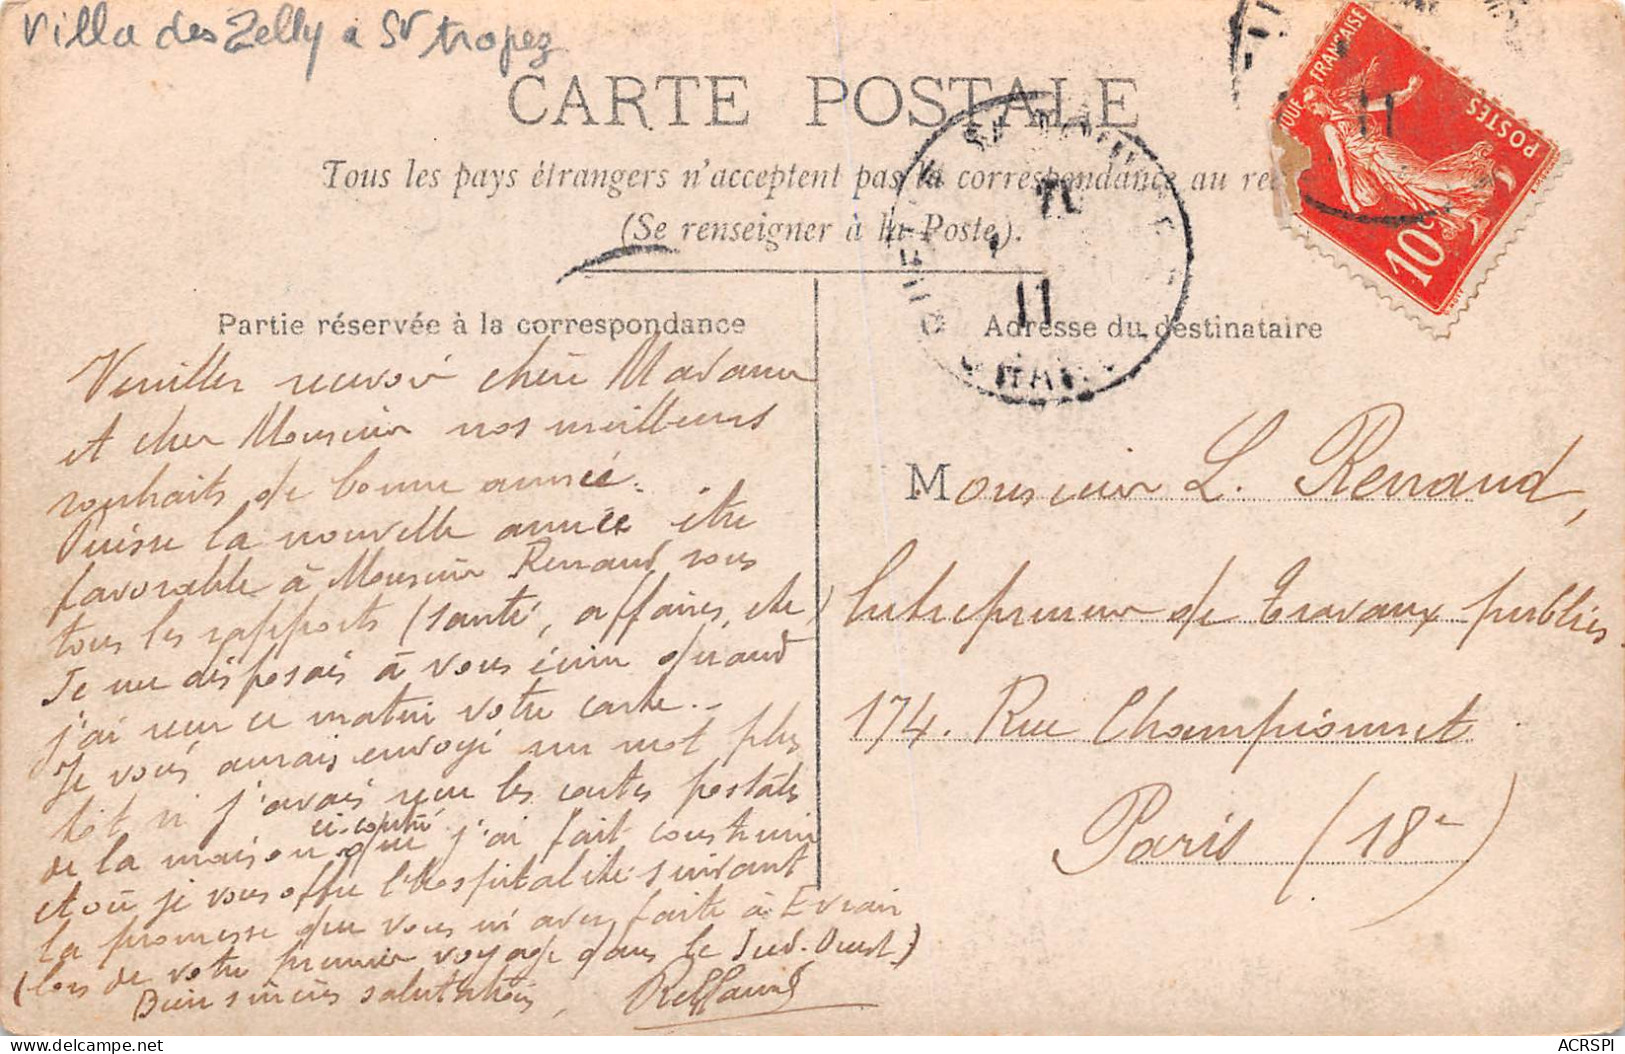 Villa des Zelly a St tropez
CARTE POSTALE
Tous les pays étrangers n'acceptent pas la correspondance au
(Se renseigner à la Poste).
Partie réservée à la correspondance
Veuillez recevoir chère Madame
et cher Monsieur nos meilleurs
souhaits de bonne année.
Puisse la nouvelle année être
favorable à Monsieur Renaud sous
tous les rapports (santé, affaires, etc)
Je me disposais à vous écrire quand
j'ai reçu ce matin votre carte.-
Je vous aurais envoyé un mot plus
tôt si j'avais reçu les cartes postales
de la maison ci-contre que j'ai fait construire
et où je vous offre l'hospitalité suivant
la promesse que vous m'avez faite à Evian
(lors de votre premier voyage dans le Sud-Ouest)
Bien sincères salutations,
Adresse du destinataire
Monsieur L. Renaud,
Entrepreneur de travaux publics
174. Rue Championnet
Paris (18e)
11
11
FRANÇAISE
POSTES
10c
ACRSPI
delcampe.net